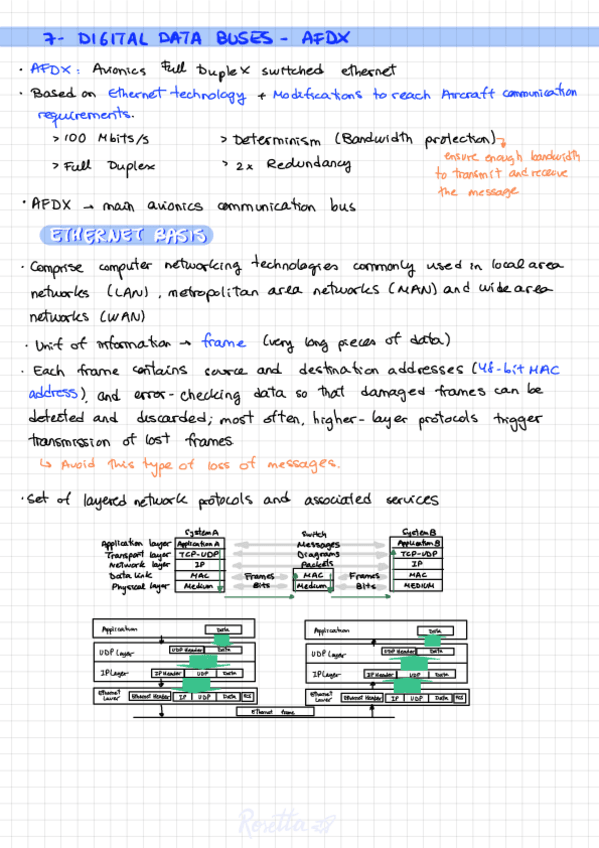 7- DIGITAL DATA BUSES - AFDX
· AFDX: Avionics Full Duplex switched ethernet
· Based on Ethernet technology + Modifications to reach Aircraft communication
requirements.
> 100 Mbits/s > Determinism (Bandwidth protection)
> Full Duplex > 2x Redundancy
ensure enough bandwidth
to transmit and receive
the message
· AFDX → main avionics communication bus
ETHERNET BASIS
· Comprise computer networking technologies commonly used in local area
networks (LAN), metropolitan area networks (MAN) and wide area
networks (WAN)
· Unit of information → frame (very long pieces of data)
· Each frame contains source and destination addresses (48-bit MAC
address), and error-checking data so that damaged frames can be
detected and discarded; most often, higher-layer protocols trigger
transmission of lost frames
↳ Avoid this type of loss of messages.
· Set of layered network protocols and associated services
System A Switch System B
Application layer Application A Messages Application B
Transport layer TCP-UDP Diagrams TCP-UDP
Network layer IP Packets IP
Data Link MAC Frames MAC Frames MAC
Physical layer Medium Bits Medium Bits MEDIUM
Application Data Application Data
UDP Layer UDP Header Data UDP Layer UDP Header Data
IP Layer IP Header UDP Data IP Layer IP Header UDP Data
Ethernet Layer Ethernet Header IP UDP Data FCS Ethernet Layer Ethernet Header IP UDP Data FCS
Ethernet frame
Rosetta